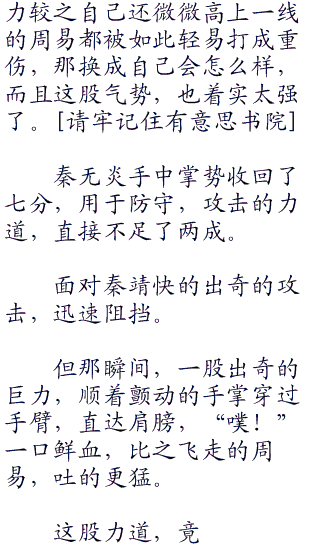 力较之自己还微微高上一线
的周易都被如此轻易打成重
伤，那换成自己会怎么样，
而且这股气势，也着实太强
了。[请牢记住有意思书院]
秦无炎手中掌势收回了
七分，用于防守，攻击的力
道，直接不足了两成。
面对秦靖快的出奇的攻
击，迅速阻挡。
但那瞬间，一股出奇的
巨力，顺着颤动的手掌穿过
手臂，直达肩膀，“噗！”
一口鲜血，比之飞走的周
易，吐的更猛。
这股力道，竟